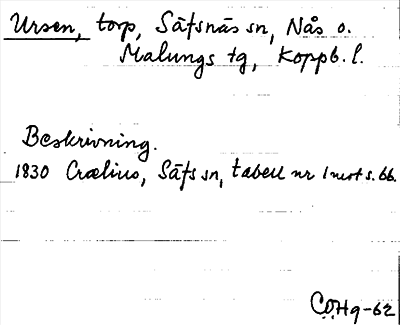 Ursen, torp, Säfsnäs sn, Nås o.
Malungs tg, Koppb. l.
Beskrivning.
1830 Crælius, Säfs sn, tabell nr 1 mot s. 66.
C.O.Hg-62